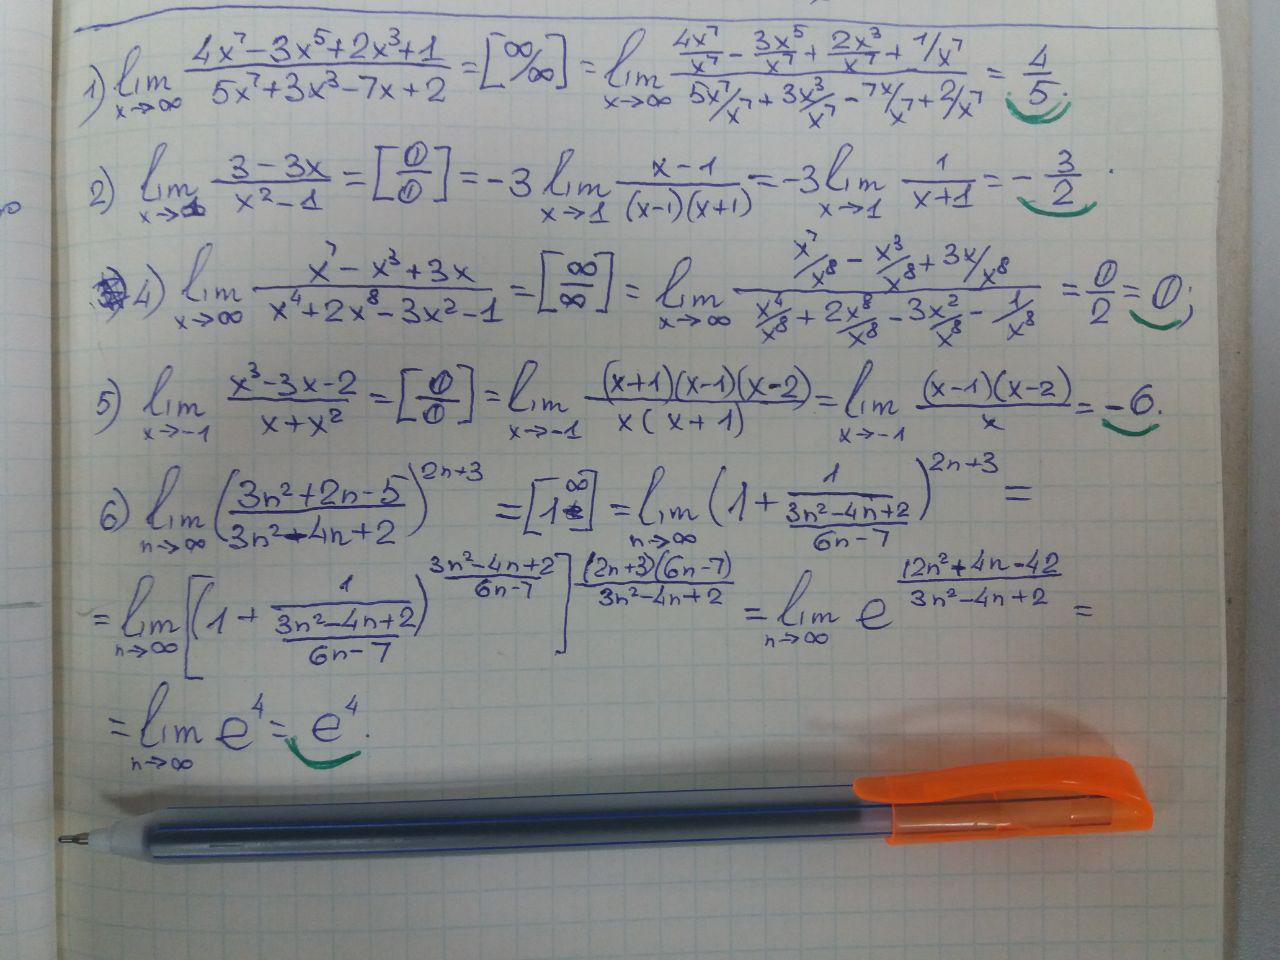 1) lim x→∞ (4x⁷-3x⁵+2x³+1)/(5x⁷+3x³-7x+2) = [∞/∞] = lim x→∞ (4x⁷/x⁷ - 3x⁵/x⁷ + 2x³/x⁷ + 1/x⁷)/(5x⁷/x⁷ + 3x³/x⁷ - 7x/x⁷ + 2/x⁷) = 4/5.
2) lim x→1 (3-3x)/(x²-1) = [0/0] = -3 lim x→1 (x-1)/((x-1)(x+1)) = -3 lim x→1 1/(x+1) = -3/2.
4) lim x→∞ (x⁷-x³+3x)/(x⁴+2x⁸-3x²-1) = [∞/∞] = lim x→∞ (x⁷/x⁸ - x³/x⁸ + 3x/x⁸)/(x⁴/x⁸ + 2x⁸/x⁸ - 3x²/x⁸ - 1/x⁸) = 0/2 = 0;
5) lim x→-1 (x³-3x-2)/(x+x²) = [0/0] = lim x→-1 ((x+1)(x-1)(x-2))/(x(x+1)) = lim x→-1 ((x-1)(x-2))/x = -6.
6) lim n→∞ ((3n²+2n-5)/(3n²-4n+2))²ⁿ⁺³ = [1^∞] = lim n→∞ (1 + 1/((3n²-4n+2)/(6n-7)))²ⁿ⁺³ =
= lim n→∞ [(1 + 1/((3n²-4n+2)/(6n-7)))^((3n²-4n+2)/(6n-7))]^((2n+3)(6n-7)/(3n²-4n+2)) = lim n→∞ e^((12n²+4n-42)/(3n²-4n+2)) =
= lim n→∞ e⁴ = e⁴.